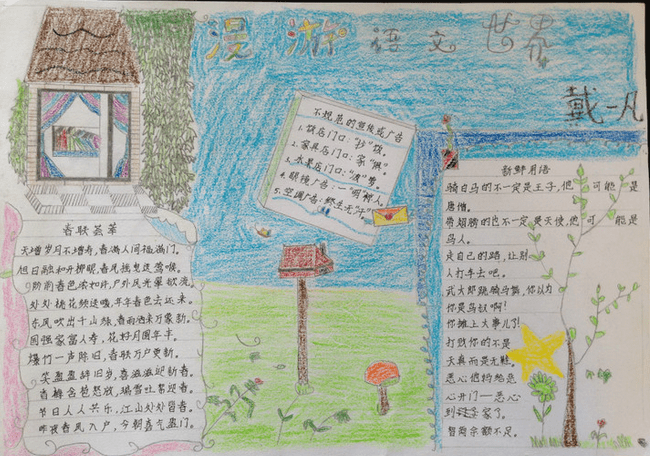 漫游语文世界
戴一凡
不规范的宣传或广告
1.饭店门口:“抄”饭。
2.家具店门口:家“俱”。
3.水果店门口:“波”萝。
4.眼镜广告:一“明”惊人。
5.空调广告:终生无“汗”
春联荟萃
天增岁月人增寿,春满人间福满门。
旭日融和开柳眼,春风摇曳送莺喉。
阶前春色浓如许,户外风光翠欲流。
处处桃花频送暖,年年春色去还来。
东风吹出千山绿,春雨洒来万象新。
国强家富人寿,花好月圆年丰。
爆竹一声除旧,春联万户更新。
笑盈盈辞旧岁,喜滋滋迎新春。
春梅含苞怒放,瑞雪吐絮迎春。
节日人人共乐,江山处处皆春。
昨夜春风入户,今朝喜气盈门。
新鲜用语
骑白马的不一定是王子,他可能是
唐僧。
带翅膀的也不一定是天使,他可能是
鸟人。
走自己的路,让别
人打车去吧。
武大郎跳骑马舞,你以为
你是鸟叔啊!
你摊上大事儿了!
打败你的不是
天真而是无鞋。
恶心他妈给恶
心开门—恶心
到家了。
智商余额不足。